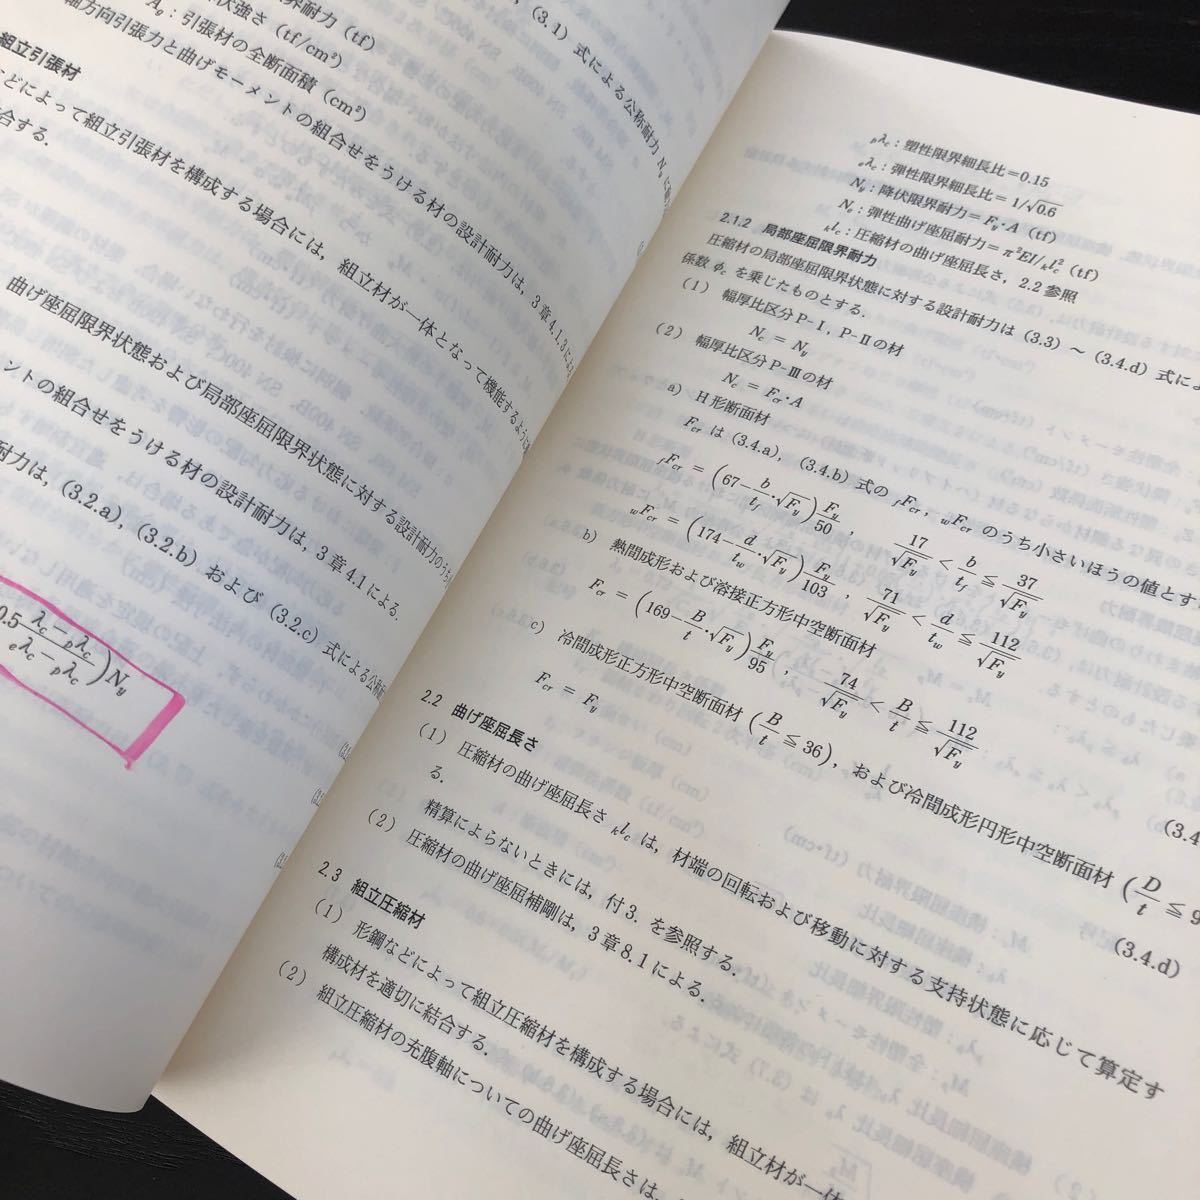 伏強さ (tf/cm²)
A_g：引張材の全断面積 (cm²)
軸方向引張力と曲げモーメントの組合せをうける材の設計耐力は，3章4.1.3による
組立引張材
などによって組立引張材を構成する場合には，組立材が一体となって機能するように
合する．
曲げ座屈限界状態および局部座屈限界状態に対する設計耐力のうち
ントの組合せをうける材の設計耐力は，3章4.1による．
耐力は，(3.2.a)，(3.2.b) および (3.2.c) 式による公称耐
0.5 (λ_c−_pλ_c)/(_eλ_c−_pλ_c)) N_y
_pλ_c：塑性限界細長比＝0.15
_eλ_c：弾性限界細長比＝1/√0.6
N_y：降伏限界耐力＝F_y・A (tf)
N_e：弾性曲げ座屈耐力＝π²EI/_kl_c² (tf)
_kl_c：圧縮材の曲げ座屈長さ，2.2参照
2.1.2 局部座屈限界耐力
圧縮材の局部座屈限界状態に対する設計耐力は (3.3)～(3.4.d) 式によ
係数φ_cを乗じたものとする．
(1) 幅厚比区分P-Ⅰ，P-Ⅱの材
N_c = N_y
(2) 幅厚比区分P-Ⅲの材
N_c = F_cr・A
a) H形断面材
F_crは (3.4.a)，(3.4.b) 式の _fF_cr，_wF_cr のうち小さいほうの値とす
_fF_cr = (67−b/t_f・√F_y) F_y/50，17/√F_y < b/t_f ≦ 37/√F_y
_wF_cr = (174−d/t_w・√F_y) F_y/103，71/√F_y < d/t_w ≦ 112/√F_y
b) 熱間成形および溶接正方形中空断面材
F_cr = (169−B/t・√F_y) F_y/95，74/√F_y < B/t ≦ 112/√F_y
c) 冷間成形正方形中空断面材 (B/t ≦ 36)，および冷間成形円形中空断面材 (D/t ≦ 9
F_cr = F_y
(3.4.d)
2.2 曲げ座屈長さ
(1) 圧縮材の曲げ座屈長さ _kl_c は，材端の回転および移動に対する支持状態に応じて算定す
る．
精算によらないときには，付3．を参照する．
(2) 圧縮材の曲げ座屈補剛は，3章8.1による．
2.3 組立圧縮材
(1) 形鋼などによって組立圧縮材を構成する場合には，組立材が一体
構成材を適切に結合する．
(2) 組立圧縮材の充腹軸についての曲げ座屈長さは，